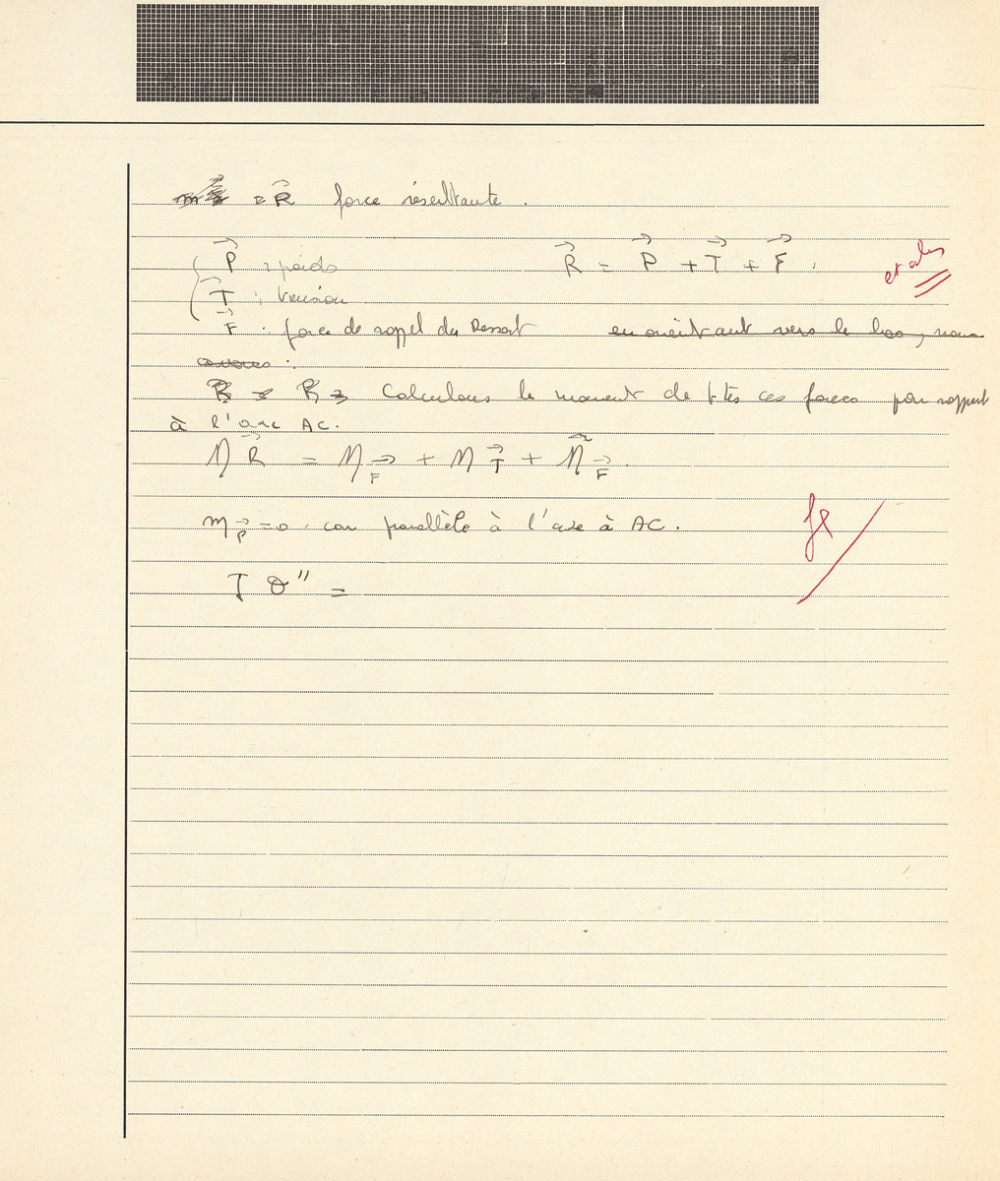 = R⃗ force résultante.
P⃗ : poids R⃗ = P⃗ + T⃗ + F⃗.
et alors
T⃗ : tension
F⃗ : force de rappel du Ressort en orientant vers le bas, nous
avons :
R = R = Calculons le moment de ttes ces forces par rapport
à l'axe AC.
M R⃗ = M F⃗ + M T⃗ + M F⃗.
M P⃗ = 0. car parallèle à l'axe à AC.
J θ'' =